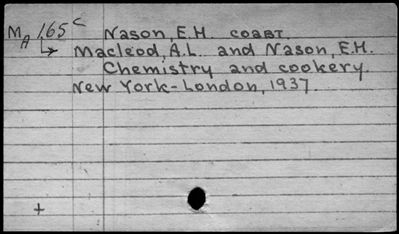 MA 165 c Nason, E.H. соавт.
Macleod, A.L. and Nason, E.H.
Chemistry and cookery.
New York-London, 1937.
+